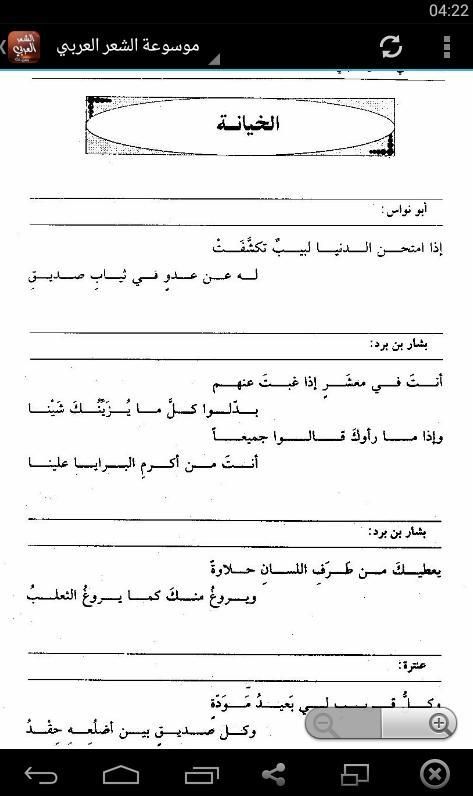 04:22
موسوعة الشعر العربي
الخيانـة
أبو نواس:
إذا امتحـن الـدنيـا لبيـبٌ تكشَّفَـتْ
لـه عـن عدوٍ فـي ثيـابِ صديـقِ
بشار بن برد:
أنـتَ فـي معشَـرٍ إذا غبـتَ عنهـم
بـدّلـوا كـلَّ مـا يُـزَيّنُـكَ شَيْنـا
وإذا مـا رأوكَ قـالـوا جميعـاً
أنـتَ مـن أكـرمِ البـرايـا علينـا
بشار بن برد:
يعطيـكَ مـن طَـرَفِ اللسـانِ حـلاوةً
ويـروغُ منـكَ كمـا يـروغُ الثعلـبُ
عنترة:
وكـلُّ قـريـبٍ لـي بَعيـدُ مَـوَدّةٍ
وكـل صديـقٍ بيـن أضلُعِـهِ حِقْـدُ